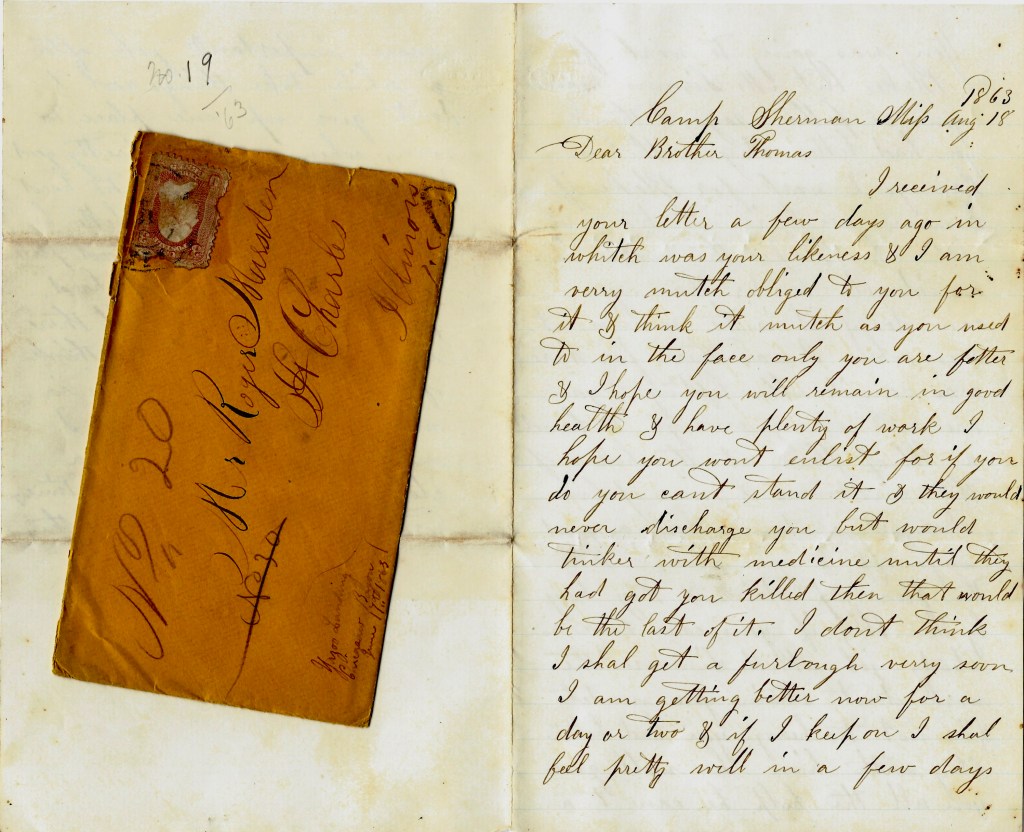 No. 19
'63
Mr Roger Marsden
St Charles
Illinois
No 20
No 20
Yazoo Landing
June 17th 1863
1863
Camp Sherman Miss Aug 18
Dear Brother Thomas
I received
your letter a few days ago in
whitch was your likeness & I am
verry mutch obliged to you for
it & think it mutch as you used
to in the face only you are fatter
& I hope you will remain in good
health & have plenty of work I
hope you wont enlist for if you
do you cant stand it & they would
never discharge you but would
tinker with medicine until they
had got you killed then that would
be the last of it. I dont think
I shal get a furlough verry soon
I am getting better now for a
day or two & if I keep on I shal
feel pretty well in a few days